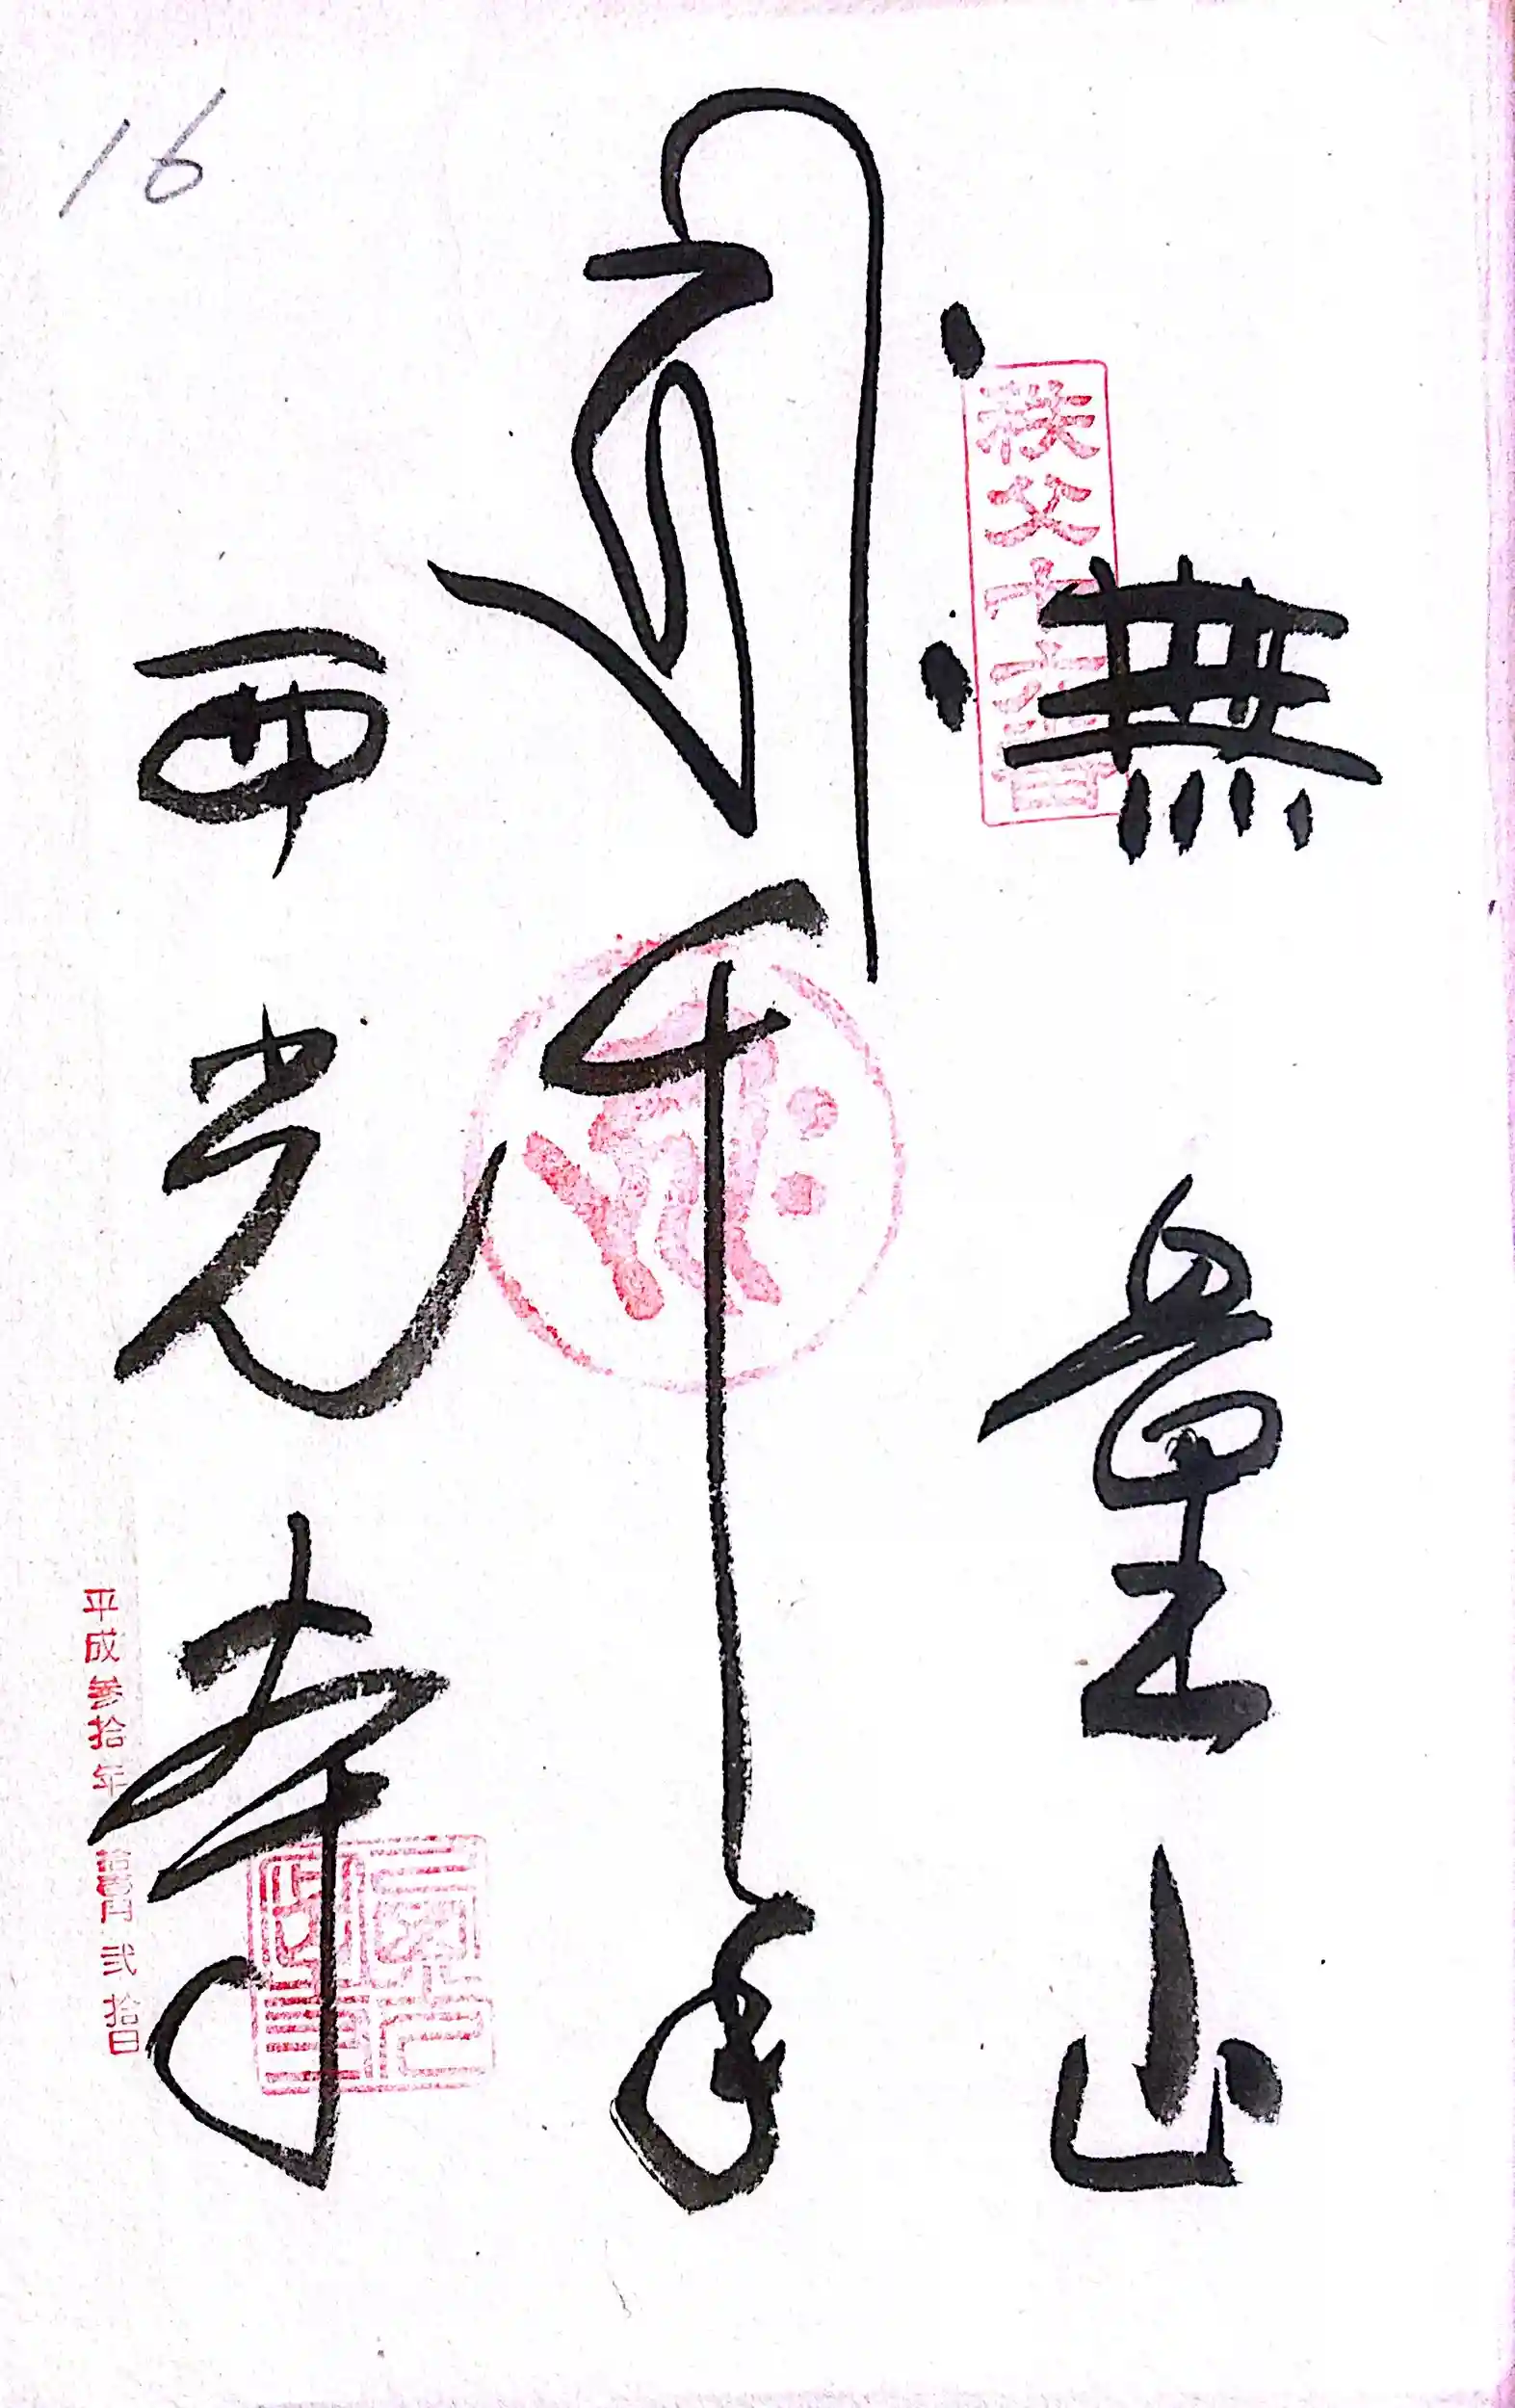 秩父十六番
無量山
千手
西光寺
平成参拾年 拾月 弐拾日
16